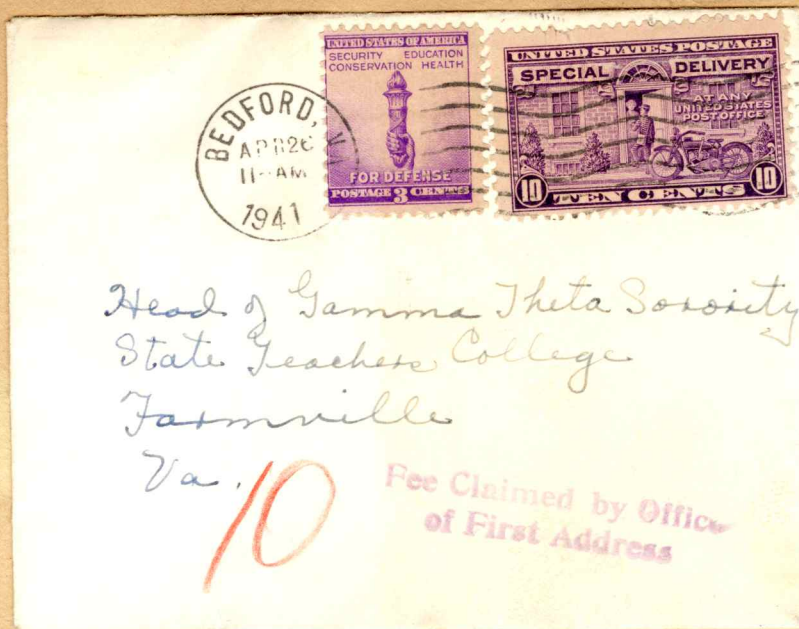 UNITED STATES OF AMERICA
SECURITY EDUCATION
CONSERVATION HEALTH
FOR DEFENSE
POSTAGE 3 CENTS
UNITED STATES POSTAGE
SPECIAL DELIVERY
AT ANY
UNITED STATES
POST OFFICE
10 TEN CENTS 10
BEDFORD,
APR 26
11-AM
1941
Head of Gamma Theta Sorority
State Teachers College
Farmville
Va.
10
Fee Claimed by Office
of First Address